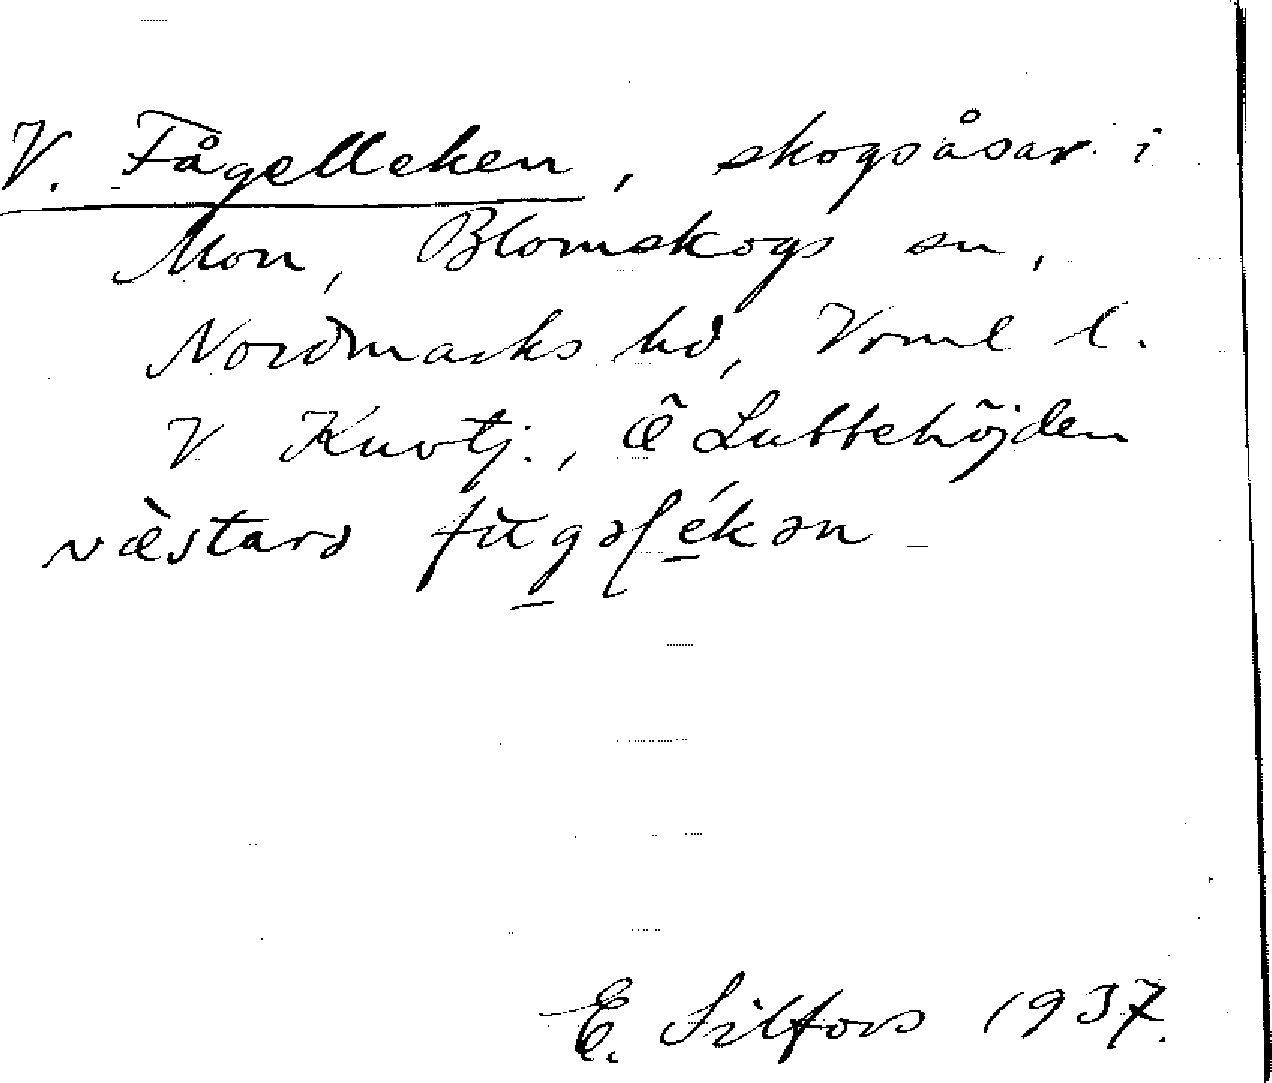 V. Fågelleken, skogsåsar i
Mon, Blomskogs sn,
Nordmarks hd, Vrml l.
V Kuvtj., Ö Lubbehöjden
væstarə fùgəlékən
E. Silfors 1937.